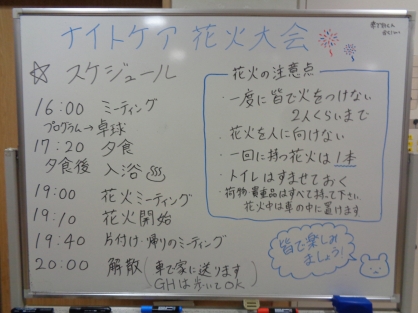 ナイトケア 花火大会
☆ スケジュール
16:00 ミーティング
プログラム→卓球
17:20 夕食
夕食後 入浴♨
19:00 花火ミーティング
19:10 花火開始
19:40 片付け・帰りのミーティング
20:00 解散(車で家に送ります
GHは歩いてOK)
花火の注意点
・一度に皆で火をつけない
2人くらいまで
・花火を人に向けない
・一回に持つ花火は1本
・トイレはすませておく
・荷物・貴重品はすべて持って下さい
花火中は車の中に置けます
皆で楽しみ
ましょう!